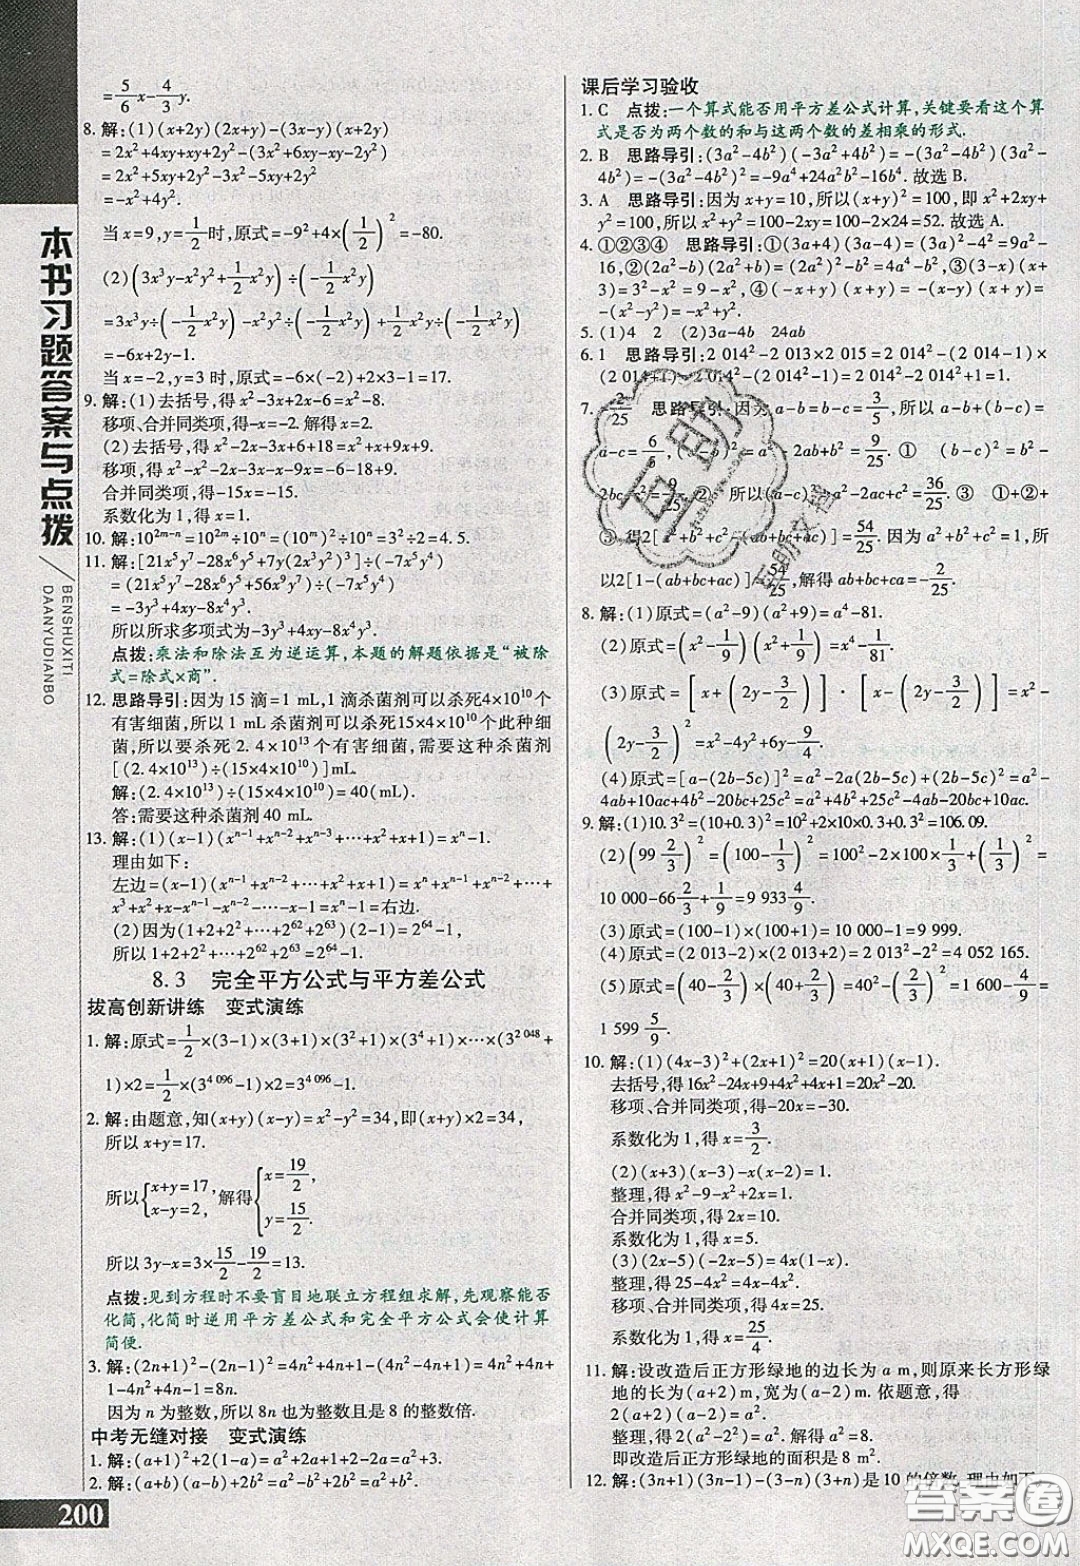 本书习题答案与点拨
BENSHUXITI
DAANYUDIANBO
=5/6x-4/3y.
8. 解:(1)(x+2y)(2x+y)-(3x-y)(x+2y)
=2x²+4xy+xy+2y²-(3x²+6xy-xy-2y²)
=2x²+5xy+2y²-3x²-5xy+2y²
=-x²+4y².
当x=9,y=1/2时,原式=-9²+4×(1/2)²=-80.
(2)(3x³y-x²y²+1/2x²y)÷(-1/2x²y)
=3x³y÷(-1/2x²y)-x²y²÷(-1/2x²y)+1/2x²y÷(-1/2x²y)
=-6x+2y-1.
当x=-2,y=3时,原式=-6×(-2)+2×3-1=17.
9. 解:(1)去括号,得x²-3x+2x-6=x²-8.
移项、合并同类项,得-x=-2. 解得x=2.
(2)去括号,得x²-2x-3x+6+18=x²+x+9x+9.
移项,得x²-x²-2x-3x-x-9x=-6-18+9.
合并同类项,得-15x=-15.
系数化为1,得x=1.
10. 解:10²ᵐ⁻ⁿ=10²ᵐ÷10ⁿ=(10ᵐ)²÷10ⁿ=3²÷2=4.5.
11. 解:[21x⁵y⁷-28x⁶y⁵+7y(2x³y²)³]÷(-7x⁵y⁴)
=(21x⁵y⁷-28x⁶y⁵+56x⁹y⁷)÷(-7x⁵y⁴)
=-3y³+4xy-8x⁴y³.
所以所求多项式为-3y³+4xy-8x⁴y³.
点拨:乘法和除法互为逆运算,本题的解题依据是“被除
式=除式×商”.
12. 思路导引:因为15滴=1 mL,1滴杀菌剂可以杀死4×10¹⁰个
有害细菌,所以1 mL杀菌剂可以杀死15×4×10¹⁰个此种细
菌,所以要杀死2.4×10¹³个有害细菌,需要这种杀菌剂
[(2.4×10¹³)÷(15×4×10¹⁰)]mL.
解:(2.4×10¹³)÷(15×4×10¹⁰)=40(mL).
答:需要这种杀菌剂40 mL.
13. 解:(1)(x-1)(xⁿ⁻¹+xⁿ⁻²+xⁿ⁻³+⋯+x²+x+1)=xⁿ-1.
理由如下:
左边=(x-1)(xⁿ⁻¹+xⁿ⁻²+⋯+x²+x+1)=xⁿ+xⁿ⁻¹+xⁿ⁻²+⋯+
x³+x²+x-xⁿ⁻¹-xⁿ⁻²-⋯-x²-x-1=xⁿ-1=右边.
(2)因为(1+2+2²+⋯+2⁶²+2⁶³)(2-1)=2⁶⁴-1,
所以1+2+2²+⋯+2⁶²+2⁶³=2⁶⁴-1.
8.3 完全平方公式与平方差公式
拔高创新讲练 变式演练
1. 解:原式=1/2×(3-1)×(3+1)×(3²+1)×(3⁴+1)×⋯×(3²⁰⁴⁸+
1)×2=1/2×(3⁴⁰⁹⁶-1)×2=3⁴⁰⁹⁶-1.
2. 解:由题意,知(x+y)(x-y)=x²-y²=34,即(x+y)×2=34,
所以x+y=17.
所以{x+y=17, x-y=2, 解得{x=19/2, y=15/2.
所以3y-x=3×15/2-19/2=13.
点拨:见到方程时不要盲目地联立方程组求解,先观察能否
化简,化简时逆用平方差公式和完全平方公式会使计算
简便.
3. 解:(2n+1)²-(2n-1)²=4n²+4n+1-(4n²-4n+1)=4n²+4n+
1-4n²+4n-1=8n.
因为n为整数,所以8n也为整数且是8的整数倍.
中考无缝对接 变式演练
1. 解:(a+1)²+2(1-a)=a²+2a+1+2-2a=a²+3.
2. 解:(a+b)(a-b)+2b²=a²-b²+2b²=a²+b².
200
课后学习验收
1. C 点拨:一个算式能否用平方差公式计算,关键要看这个算
式是否为两个数的和与这两个数的差相乘的形式.
2. B 思路导引:(3a²-4b²)(-3a²+4b²)=-(3a²-4b²)(3a²-
4b²)=-(3a²-4b²)²=-9a⁴+24a²b²-16b⁴. 故选B.
3. A 思路导引:因为x+y=10,所以(x+y)²=100,即x²+2xy+
y²=100,所以x²+y²=100-2xy=100-2×24=52. 故选A.
4. ①②③④ 思路导引:①(3a+4)(3a-4)=(3a)²-4²=9a²-
16,②(2a²-b)(2a²+b)=(2a²)²-b²=4a⁴-b²,③(3-x)(x+
3)=3²-x²=9-x²,④(-x+y)(x+y)=-(x-y)(x+y)=
-(x²-y²)=-x²+y².
5. (1)4 2 (2)3a-4b 24ab
6. 1 思路导引:2 014²-2 013×2 015=2 014²-(2 014-1)×
(2 014+1)=2 014²-(2 014²-1)=2 014²-2 014²+1=1.
7. -2/25 思路导引:因为a-b=b-c=3/5,所以a-b+(b-c)=
a-c=6/5,(a-b)²=a²-2ab+b²=9/25. ① (b-c)²=b²-
2bc+c²=9/25, ② 所以(a-c)²=a²-2ac+c²=36/25. ③ ①+②+
③得2(a²+b²+c²)-2(ab+bc+ac)=54/25. 因为a²+b²+c²=1,所
以2[1-(ab+bc+ac)]=54/25,解得ab+bc+ca=-2/25.
8. 解:(1)原式=(a²-9)(a²+9)=a⁴-81.
(2)原式=(x²-1/9)(x²+1/9)=x⁴-1/81.
(3)原式=[x+(2y-3/2)]·[x-(2y-3/2)]=x²-
(2y-3/2)²=x²-4y²+6y-9/4.
(4)原式=[a-(2b-5c)]²=a²-2a(2b-5c)+(2b-5c)²=a²-
4ab+10ac+4b²-20bc+25c²=a²+4b²+25c²-4ab-20bc+10ac.
9. 解:(1)10.3²=(10+0.3)²=10²+2×10×0.3+0.3²=106.09.
(2)(99 2/3)²=(100-1/3)²=100²-2×100×1/3+(1/3)²=
10 000-66 2/3+1/9=9 933 4/9.
(3)原式=(100-1)×(100+1)=10 000-1=9 999.
(4)原式=(2 013-2)×(2 013+2)=2 013²-4=4 052 165.
(5)原式=(40-2/3)×(40+2/3)=40²-(2/3)²=1 600-4/9=
1 599 5/9.
10. 解:(1)(4x-3)²+(2x+1)²=20(x+1)(x-1).
去括号,得16x²-24x+9+4x²+4x+1=20x²-20.
移项、合并同类项,得-20x=-30.
系数化为1,得x=3/2.
(2)(x+3)(x-3)-x(x-2)=1.
整理,得x²-9-x²+2x=1.
合并同类项,得2x=10.
系数化为1,得x=5.
(3)(2x-5)(-2x-5)=4x-4x².
整理,得25-4x²=4x-4x².
移项、合并同类项,得4x=25.
系数化为1,得x=25/4.
11. 解:设改造后正方形绿地的边长为a m,则原来长方形绿
地的长为(a+2)m,宽为(a-2)m. 依题意,得
2(a+2)(a-2)=a².
所以2(a²-2²)=a². 所以a²=8.
即改造后正方形绿地的面积是8 m².
12. 解:(3n+1)(3n-1)-(3-n)(3+n)是10的倍数,理由如下
互助
互助文档
答案圈
MXQE.COM